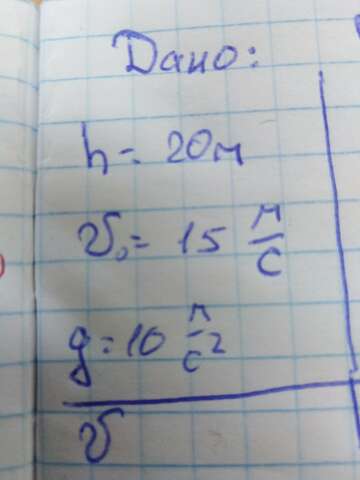 Дано:
h = 20м
v₀ = 15 м/с
g = 10 м/с²
v